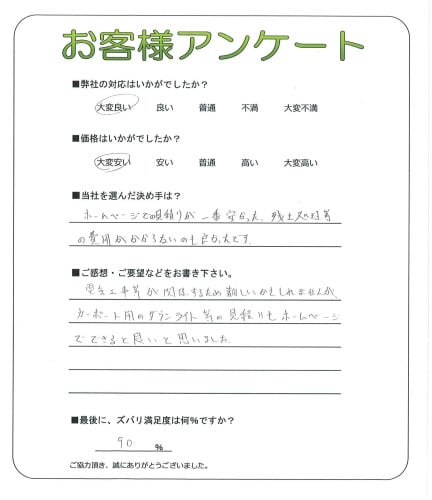 お客様アンケート
■弊社の対応はいかがでしたか?
大変良い 良い 普通 不満 大変不満
■価格はいかがでしたか?
大変安い 安い 普通 高い 大変高い
■当社を選んだ決め手は?
ホームページで見積りが一番安かった、残土処理等
の費用がかからないのも良かったです。
■ご感想・ご要望などをお書き下さい。
電気工事等が関係するため難しいかもしれませんが、
カーポート用のダウンライト等の見積りもホームページ
でできると良いと思いました
■最後に、ズバリ満足度は何%ですか?
90 %
ご協力頂き、誠にありがとうございました。